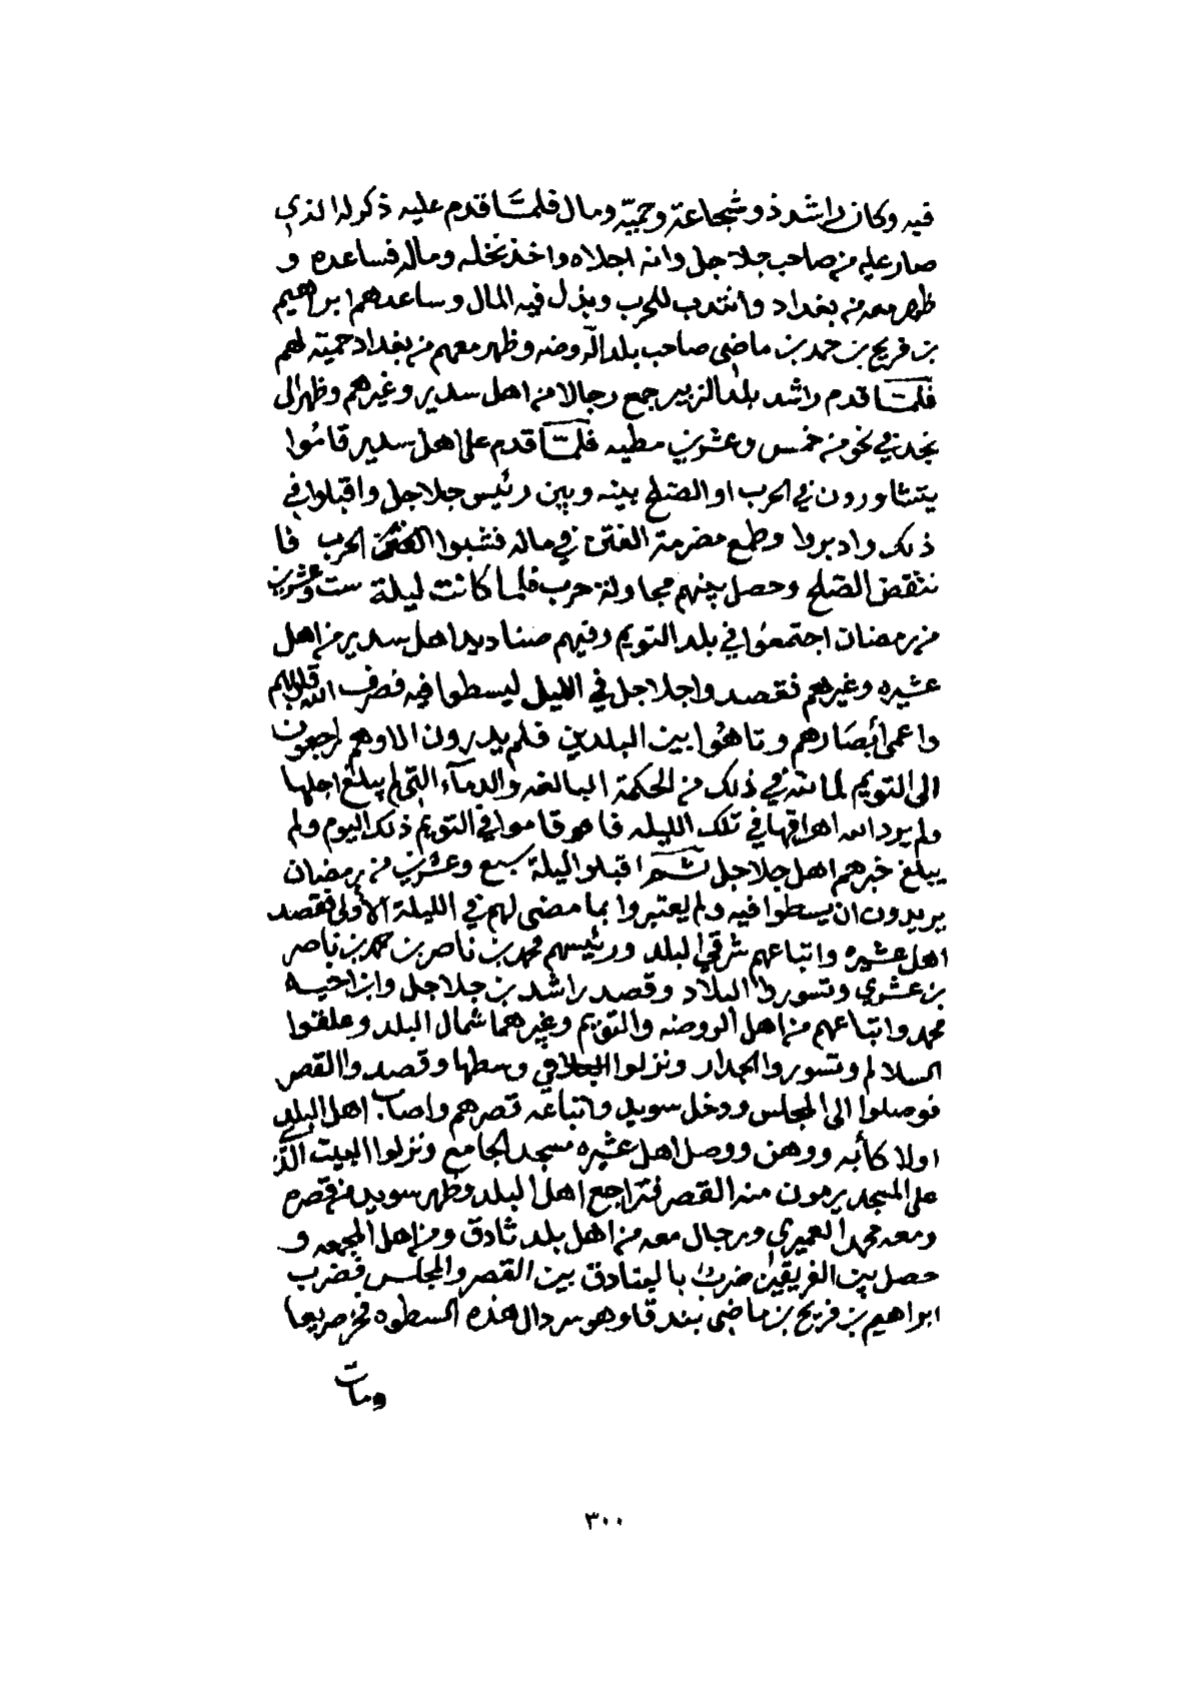 فيه وكان راشد ذو شجاعة وحميّة ومال فلمّا قدم عليه ذكر له الذي
صار عليه من صاحب جلاجل وانه اجلاه واخذ نخله وماله فساعده و
ظهر معه من بغداد وانتدب للحرب وبذل فيه المال وساعدهم ابراهيم
بن فريح بن حمد بن ماضي صاحب بلد الروضه وظهر معهم من بغداد حميّة لهم
فلمّا قدم راشد بلد الزبير جمع رجالا من اهل سدير وغيرهم وظهر الى
نجد في نحو من خمس وعشرين مطيه فلمّا قدم على اهل سدير قامُوا
يتشاورون في الحرب او الصّلح بينه وبين رئيس جلاجل واقبلوا في
ذلك وادبروا وطمع مضرمة الفتن في ماله فشبوا الحرب فا
نتقض الصّلح وحصل بينهم مجاولة حرب فلما كانت ليلة ست وعشرين
من رمضان اجتمعُوا في بلد التويم وفيهم صناديد اهل سدير من اهل
عشيره وغيرهم فقصدوا جلاجل في الليل ليسطوا فيه فصرف الله قلوبهم
واعمى أبصَارهم وتاهُوا بين البلدين فلم يدرون الا وهم راجعون
الى التويم لما لله في ذلك من الحكمة البالغه والدمآء التي لم يبلغ اجلها
ولم يرد الله اهراقها في تلك الليله فاهو قاموا في التويم ذلك اليوم ولم
يبلغ خبرهم اهل جلاجل ثم اقبلوا ليلة سبع وعشرين من رمضان
يريدون ان يسطوا فيه ولم يعتبروا بما مضى لهم في الليلة الأولى فقصد
اهل عشيره واتباعهم شرقي البلد ورئيسهم محمد بن ناصر بن حمد بن ناصر
بن عشري وتسوروا البلاد وقصد راشد بن جلاجل وابن اخيه
محمد واتباعهم من اهل الروضه والتويم وغيرهما شمال البلد وعلقوا
السلالم وتسوروا الجدار ونزلوا في وسطها وقصدوا القصر
فوصلوا الى المجلس ودخل سويد واتباعه قصرهم واصاب اهل البلد
اولا كأبه ووهن ووصل اهل عشيره مسجد الجامع ونزلوا البيت الذي
على المسجد يرمون منه القصر فتراجع اهل البلد وظهر سويد من قصره
ومعه محمد العميري ورجال معه من اهل بلد ثادق ومن اهل المجمعه و
حصل بين الفريقين ضربٌ بالبنادق بين القصر والمجلس فضرب
ابراهيم بن فريح بن ماضي بندقا وهو سردال هذه السطوه فخر صريعا
ومات
٣٠٠